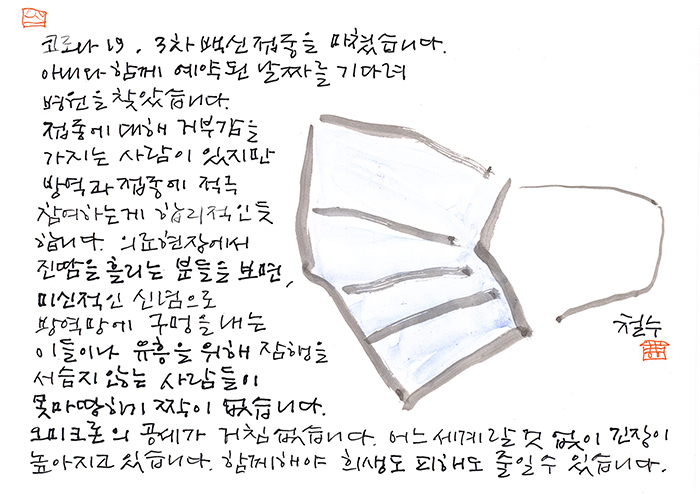 코로나 19, 3차 백신 접종을 마쳤습니다.
아내와 함께 예약된 날짜를 기다려
병원을 찾았습니다.
접종에 대해 거부감을
가지는 사람이 있지만
방역과 접종에 적극
참여하는게 합리적인듯
합니다. 의료현장에서
진땀을 흘리는 분들을 보면,
미신적인 신념으로
방역망에 구멍을 내는
이들이나 유흥을 위해 잠행을
서슴지 않는 사람들이
못마땅하기 짝이 없습니다.
오미크론의 공세가 거침없습니다. 어느 세계랄 것 없이 긴장이
높아지고 있습니다. 함께해야 희생도 피해도 줄일 수 있습니다.
철수